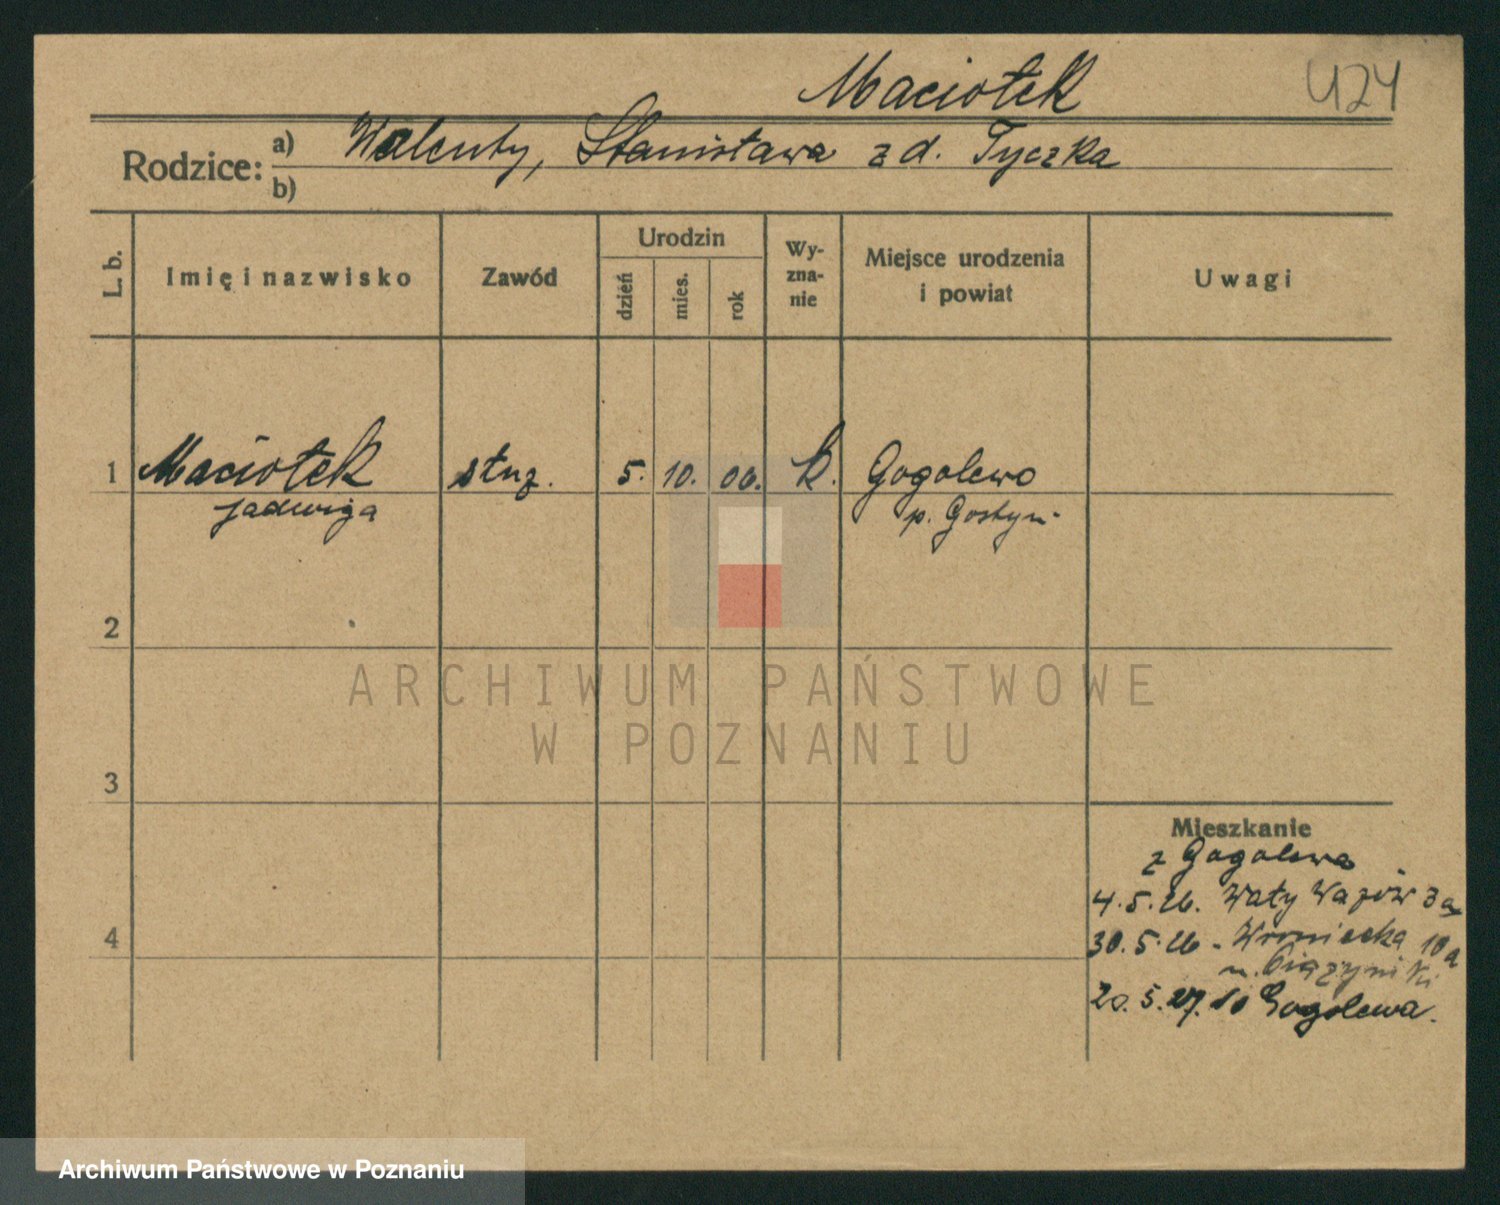 Maciołek
424
Rodzice: a) Walenty, Stanisława z d. Tyczka
b)
L. b.
Imię i nazwisko
Zawód
Urodzin
dzień
mies.
rok
Wy-
zna-
nie
Miejsce urodzenia
i powiat
Uwagi
1 Maciołek służ. 5. 10. 06. k. Gogolewo
Jadwiga p. Gostyń
2
3
4
ARCHIWUM PAŃSTWOWE
W POZNANIU
Mieszkanie
z Gogolewa
4.5.26. Wały Wazów 3a
30.5.26 - Wroniecka 10a
20.5.27. do Gogolewa.
Archiwum Państwowe w Poznaniu